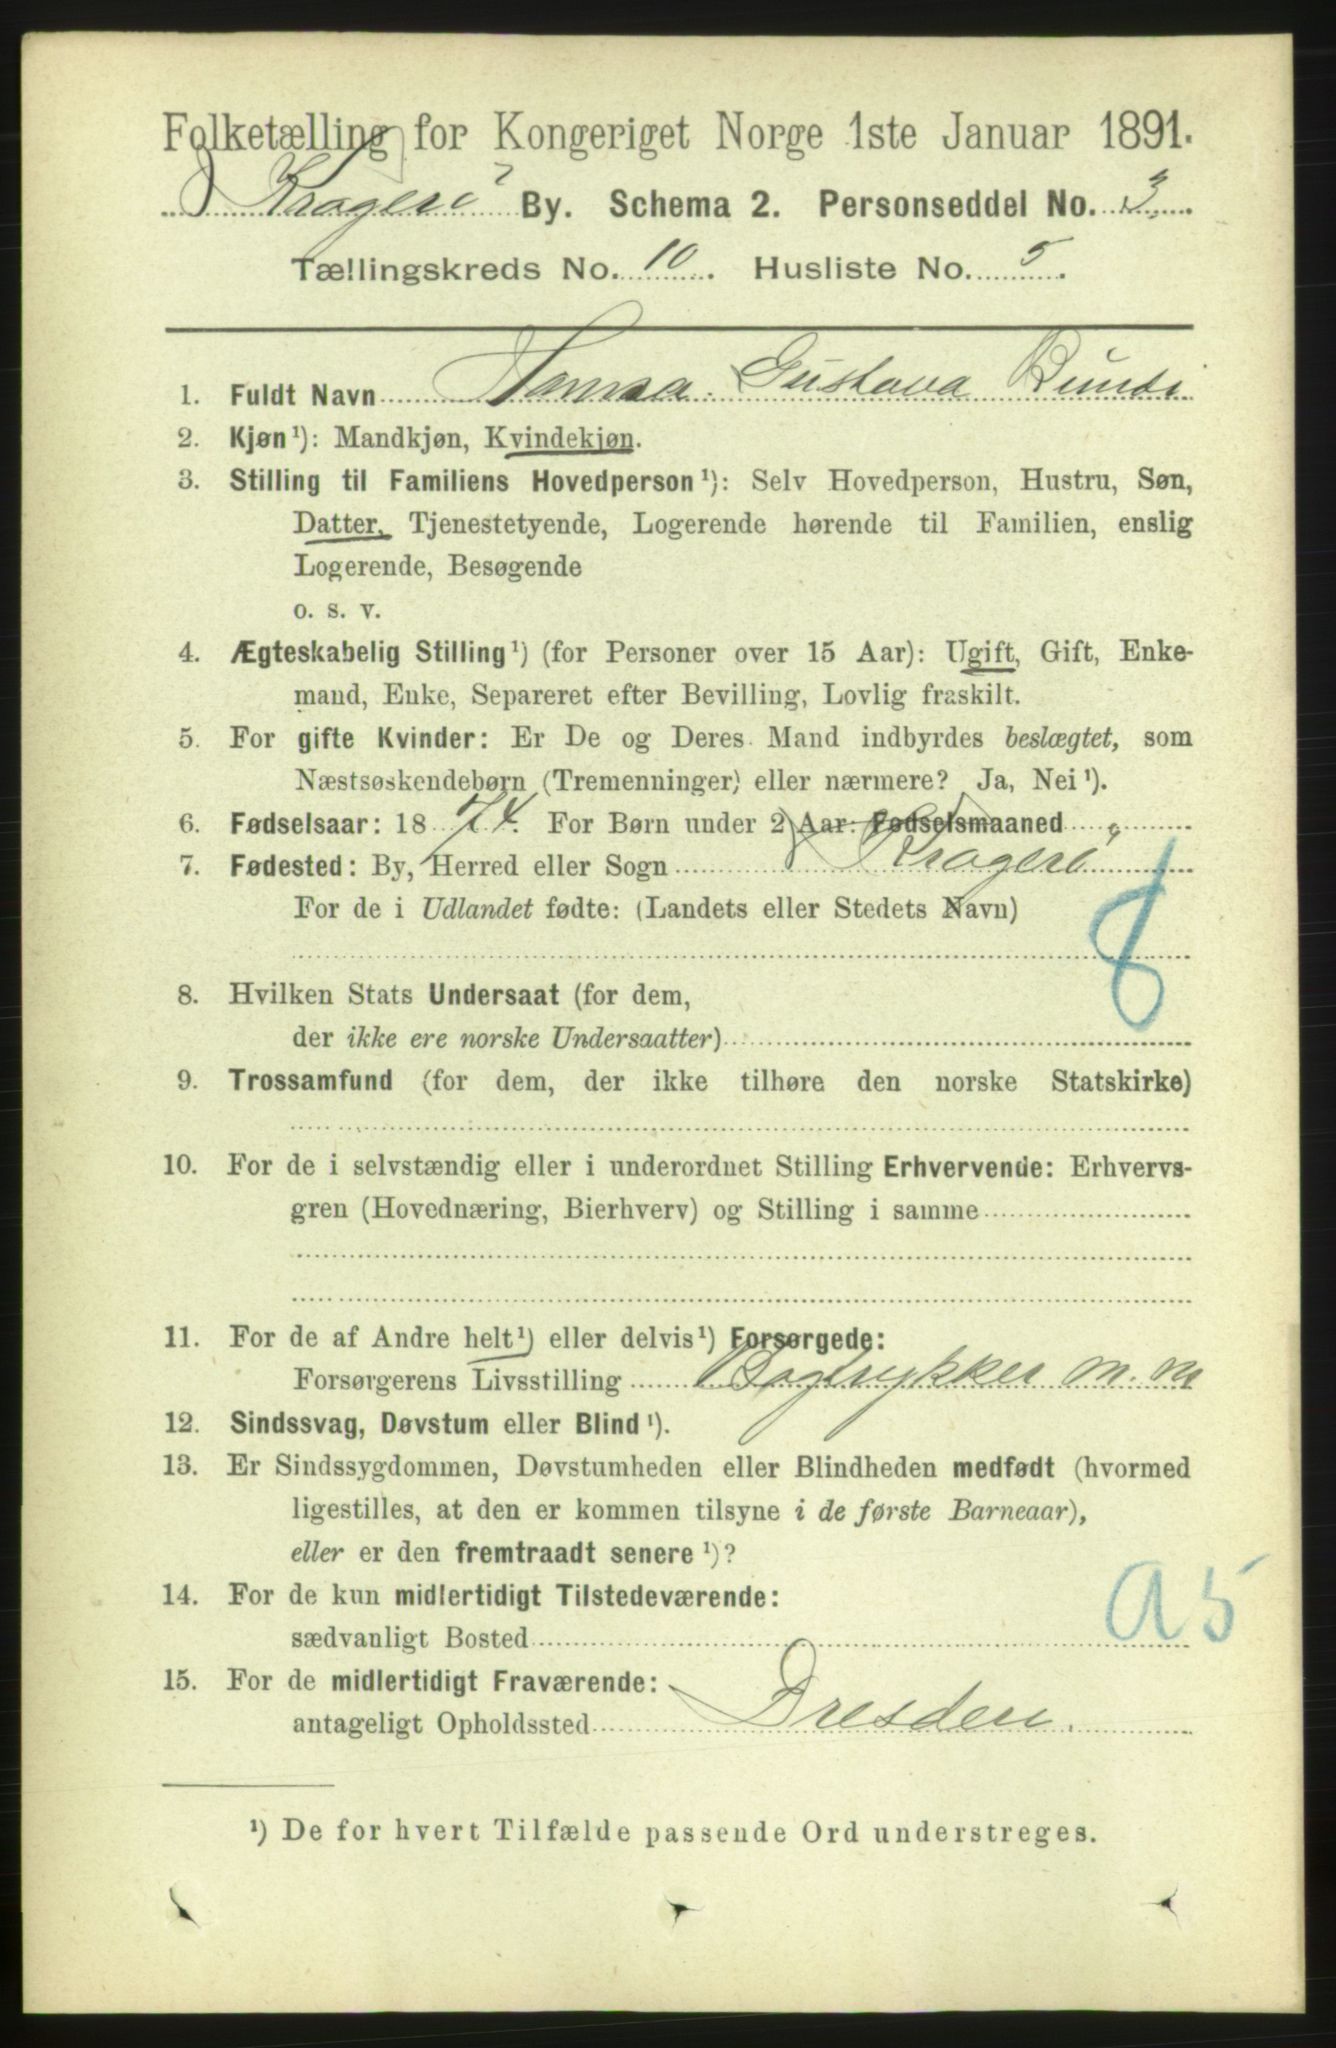 Folketælling for Kongeriget Norge 1ste Januar 1891.
Kragerö By. Schema 2. Personseddel No. 3.
Tællingskreds No. 10. Husliste No. 5.
1. Fuldt Navn Gustava
2. Kjøn ¹): Mandkjøn, Kvindekjøn.
3. Stilling til Familiens Hovedperson ¹): Selv Hovedperson, Hustru, Søn,
Datter, Tjenestetyende, Logerende hørende til Familien, enslig
Logerende, Besøgende
o. s. v.
4. Ægteskabelig Stilling ¹) (for Personer over 15 Aar): Ugift, Gift, Enke-
mand, Enke, Separeret efter Bevilling, Lovlig fraskilt.
5. For gifte Kvinder: Er De og Deres Mand indbyrdes beslægtet, som
Næstsøskendebørn (Tremenninger) eller nærmere? Ja, Nei ¹).
6. Fødselsaar: 1874. For Børn under 2 Aar: Fødselsmaaned
7. Fødested: By, Herred eller Sogn Kragerö
For de i Udlandet fødte: (Landets eller Stedets Navn)
8
8. Hvilken Stats Undersaat (for dem,
der ikke ere norske Undersaatter)
9. Trossamfund (for dem, der ikke tilhøre den norske Statskirke)
10. For de i selvstændig eller i underordnet Stilling Erhvervende: Erhvervs-
gren (Hovednæring, Bierhverv) og Stilling i samme
11. For de af Andre helt ¹) eller delvis ¹) Forsørgede:
Forsørgerens Livsstilling Bogtrykker m. m
12. Sindssvag, Døvstum eller Blind ¹).
13. Er Sindssygdommen, Døvstumheden eller Blindheden medfødt (hvormed
ligestilles, at den er kommen tilsyne i de første Barneaar),
eller er den fremtraadt senere ¹)?
14. For de kun midlertidigt Tilstedeværende:
sædvanligt Bosted
a 5
15. For de midlertidigt Fraværende:
antageligt Opholdssted Dresden.
¹) De for hvert Tilfælde passende Ord understreges.